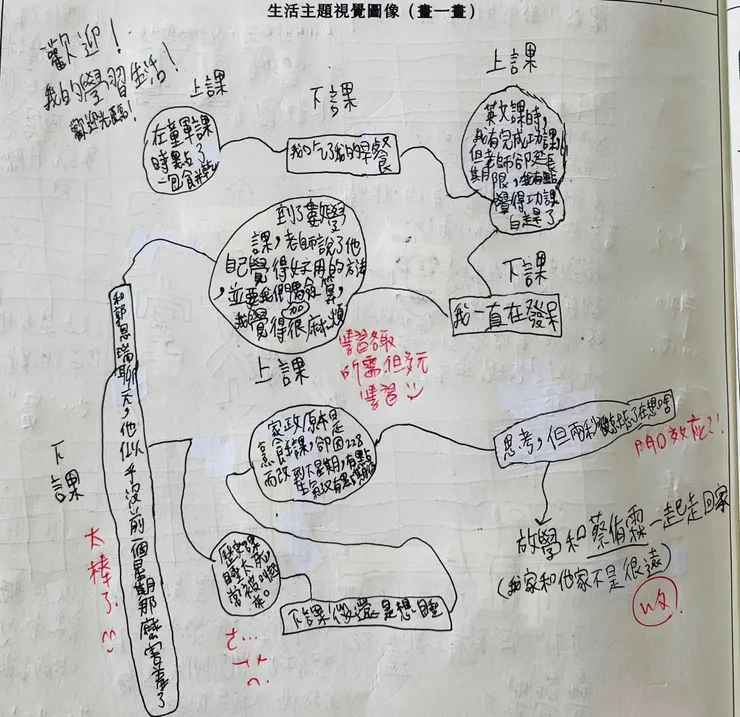 生活主題視覺圖像（畫一畫）
歡迎！
我的學習生活！
歡迎光臨！
上課
在童軍課
時點了
一包食料包
下課
我吃了我的早餐
上課
英文課時，
我有完成功課
但老師卻延長
期限，我有點
覺得功課
白趕了
下課
我一直在發呆
到了數學
課，老師說了他
自己覺得好用的方法
，並要我們買
我覺得很麻煩
上課
學習各取
所需但多元
學習
下課
和郭恩瑞聊天，他似乎沒前一個星期那麼害羞了
太棒了
家政原本是
烹飪課，卻因228
而改到下星期，有點
生氣又有點
歷史課
睡太死，
常被叫起
來。
下課後還是想睡
思考，但兩秒後就忘了在想啥
門口效應?!
放學和蔡侑霖一起走回家
（我家和他家不是很遠）